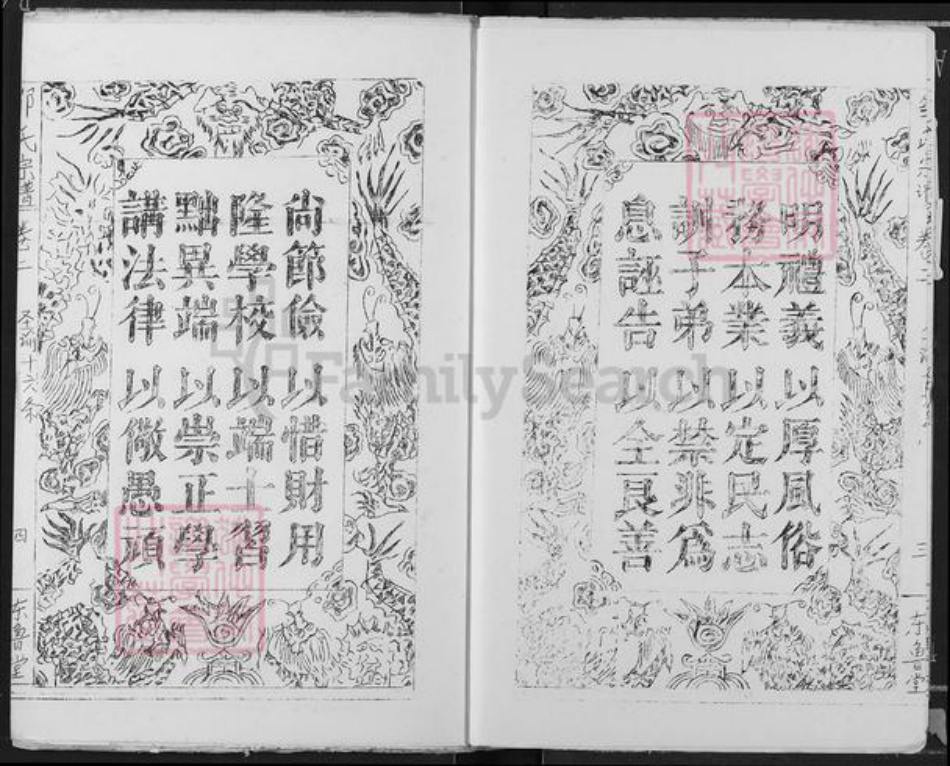 明禮義以厚風俗
務本業以定民志
訓子弟以禁非爲
息誣告以全良善
三
东魯堂
尚節儉以惜財用
隆學校以端士習
黜異端以崇正學
講法律以儆愚頑
氏宗譜
十六条
四
东魯堂
FamilySearch